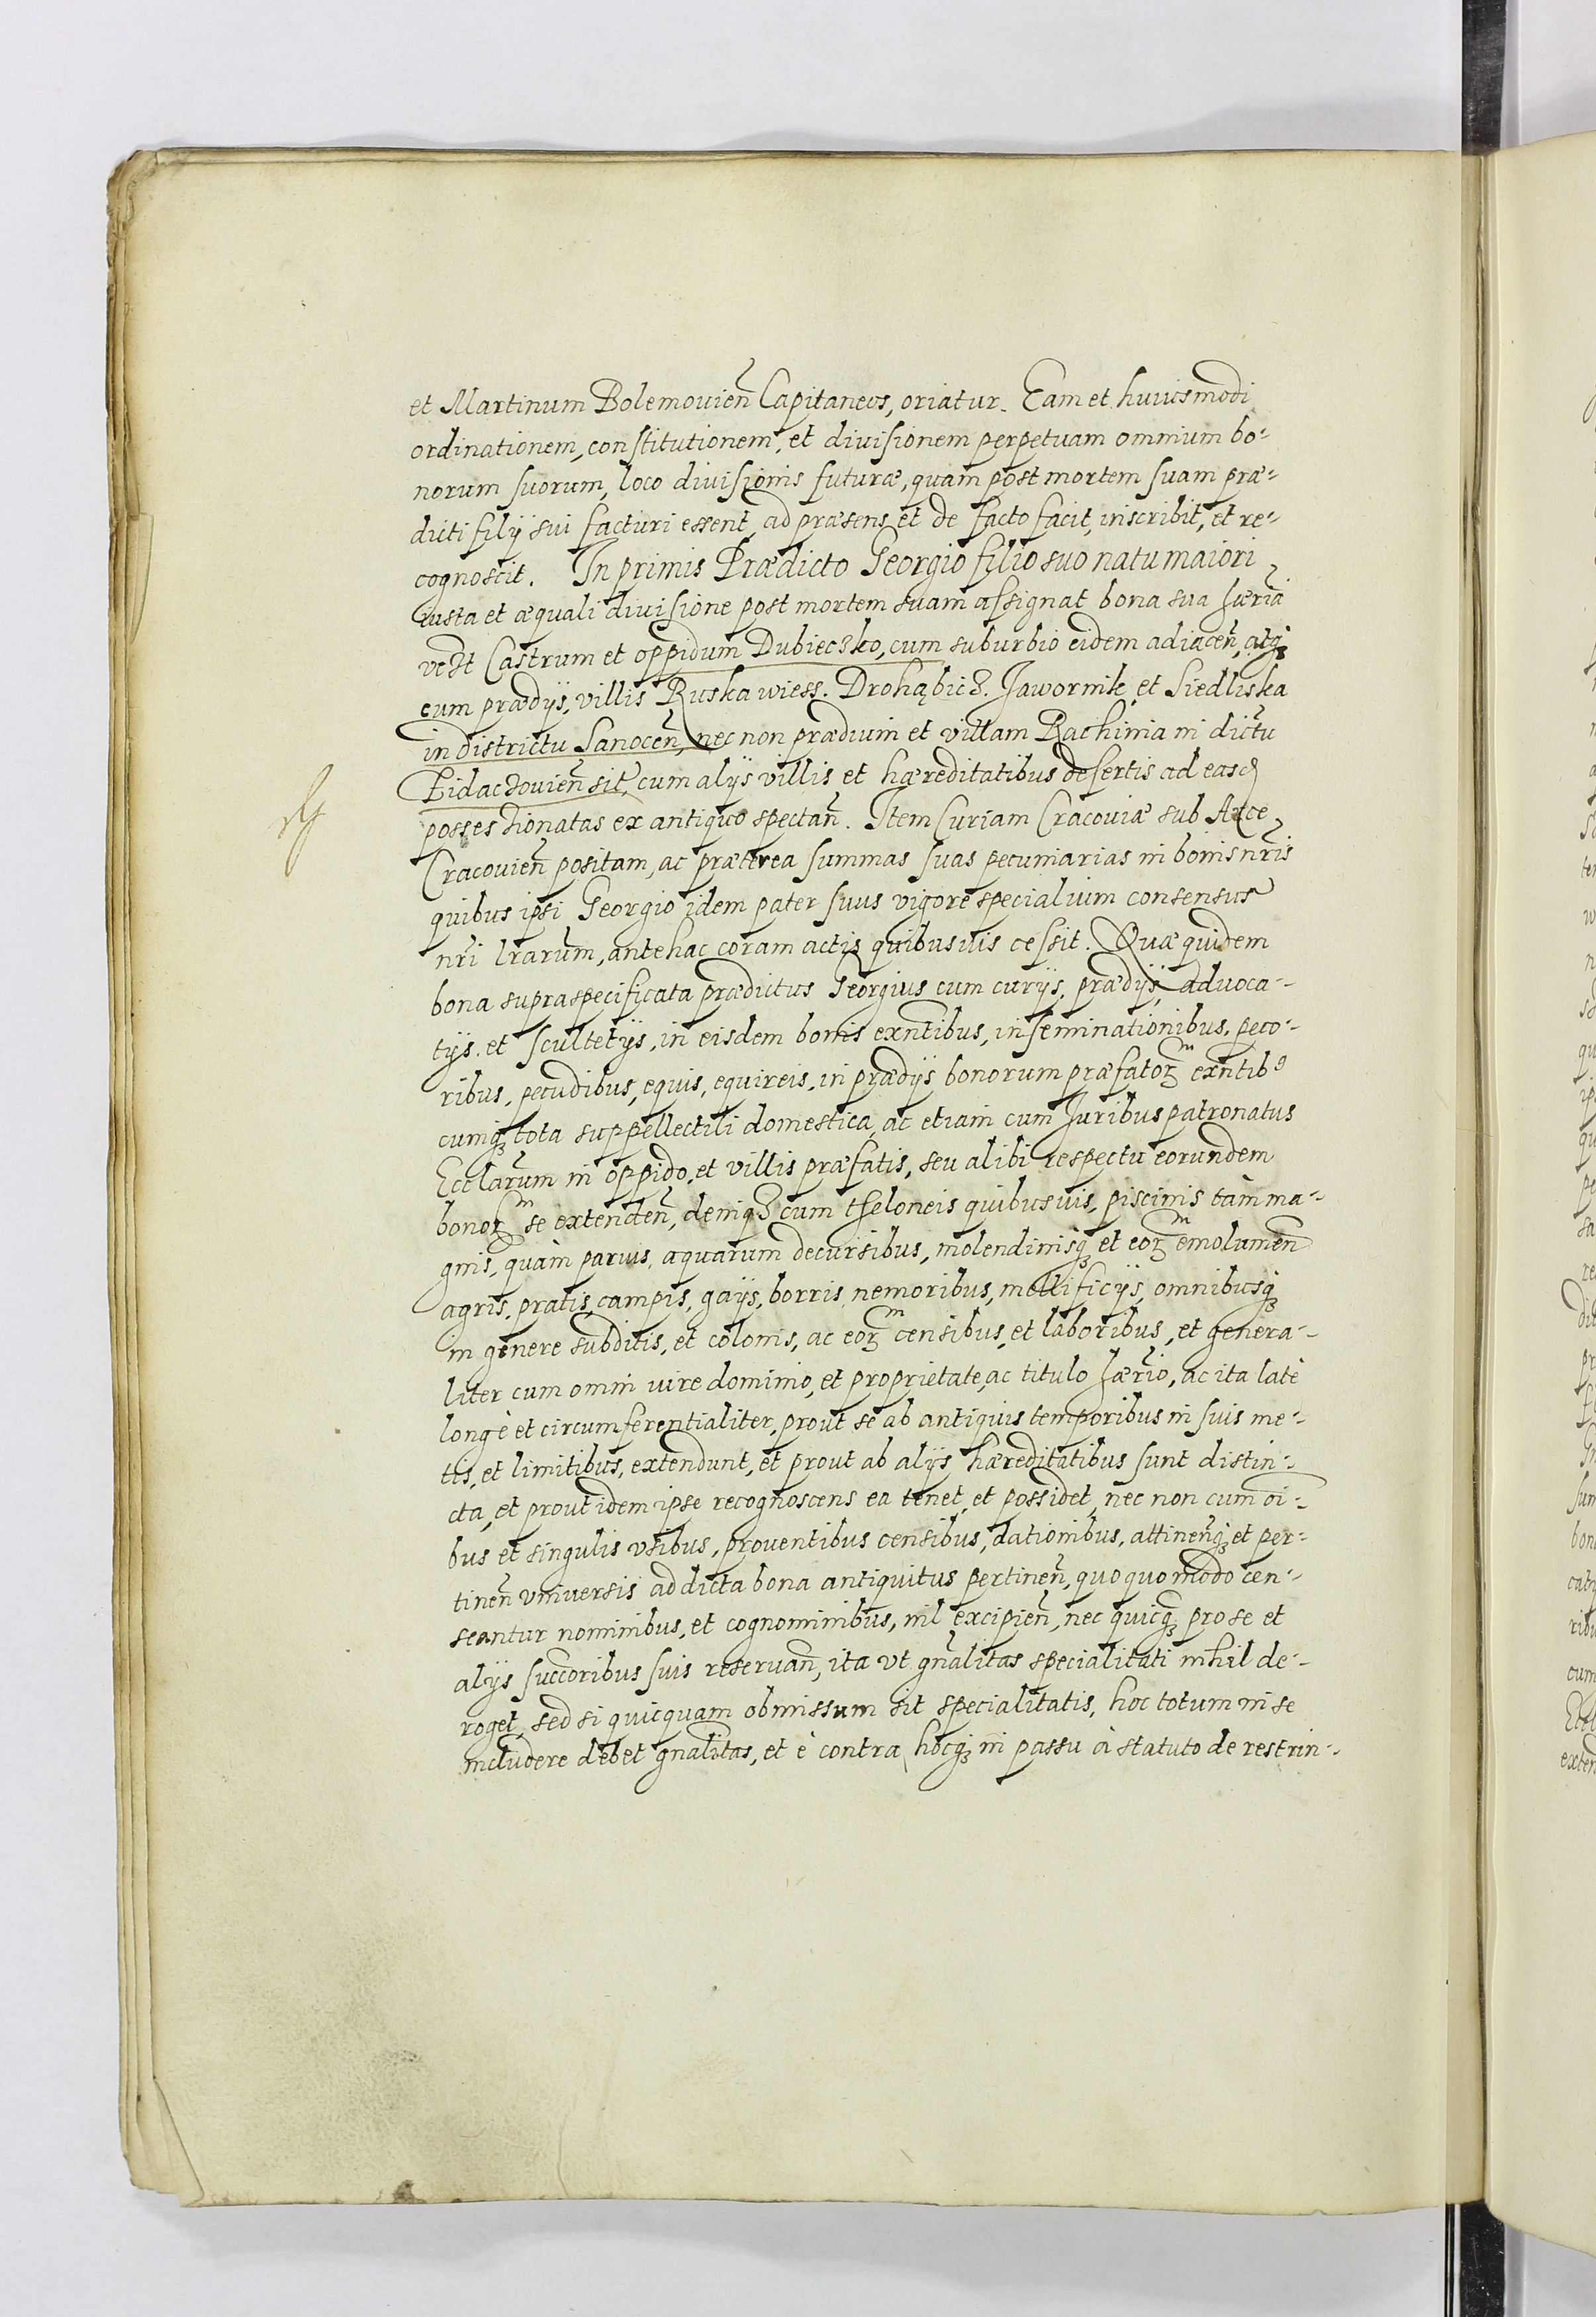 et Martinum Bolemouien̄ Capitaneos, oriatur. Eam et huiusmodi
ordinationem, constitutionem, et divisionem perpetuam omnium bo-
norum suorum, loco divisionis futuræ, quam post mortem suam præ-
dicti filÿ sui facturi essent, ad præsens et de facto facit, inscribit, et re-
cognoscit. In primis Prædicto Georgio filio suo natu maiori
iusta et æquali divisione post mortem suam assignat bona sua hæria
vedt Castrum et oppidum Dubieczko, cum suburbio eidem adiacen̄, atq;
cum prædÿs, villis Ruska wiess. Drohąbicz. Jawornik, et Siedliska
in districtu Sanocen̄, nec non prædium et villam Rachinia in dictu
Zidaczouien̄ sit, cum alÿs villis et hæreditatibus desertis ad easd
possessionatas ex antiquo spectan̄. Item Curiam Cracouiæ sub Arce
Cracouien̄ positam, ac præterea summas suas pecuniarias in bonis nr̄is
quibus ipsi Georgio idem pater suus vigore specialium consensus
nr̄i lr̄arum, antehac coram actis quibusuis cessit. Quæ quidem
bona supraspecificata prædictus Georgius cum curÿs, prædÿs, aduoca-
tÿs. et scultetÿs, in eisdem bonis exn̄tibus, inseminationibus, peco-
ribus, pecudibus, equis, equireis, in prædÿs bonorum præfatoꝝm exn̄tibꝰ
cumq; tota suppellectili domestica, ac etiam cum Juribus patronatus
Eccl̄arum in oppido, et villis præfatis, seu alibi respectu eorundem
bonoꝝm se extenden̄, deniqȝ cum theloneis quibusuis, piscinis tàm ma-
gnis, quàm paruis, aquarum decursibus, molendinisq; et eoꝝm emolumen̄
agris, pratis, campis, gaÿs, borris, nemoribus, mellificÿs, omnibusq;
in genere subditis, et colonis, ac eoꝝm censibus, et laboribus, et genera-
liter cum omni iure dominio, et proprietate, ac titulo hærio, ac ita latè
longè et circumferentialiter, prout se ab antiquis temporibus in suis me-
tis, et limitibus, extendunt, et prout ab alÿs hæreditatibus sunt distin-
cta, et prout idem ipse recognoscens ea tenet, et possidet, nec non cum oī-
bus et singulis vsibus, prouentibus censibus, dationibus, attinen̄q; et per-
tinen̄ vniuersis ad dicta bona antiquitus pertinen̄, quo quo modo cen-
seantur nominibus, et cognominibus, nil excipien̄, nec quicq; pro se et
alÿs succoribus suis reseruan̄, ita vt gn̄alitas specialitati nihil de-
roget, sed si quicquam obmissum sit specialitatis, hoc totum in se
includere debet gn̄alitas, et è contra, hocq; in passu à statuto de restrin-